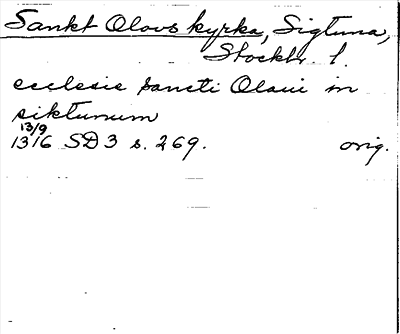 Sankt Olovs kyrka, Sigtuna,
Stockh. l.
ecclesie sancti Olaui in
siktunum
13/9
1316 SD 3 s. 269. orig.